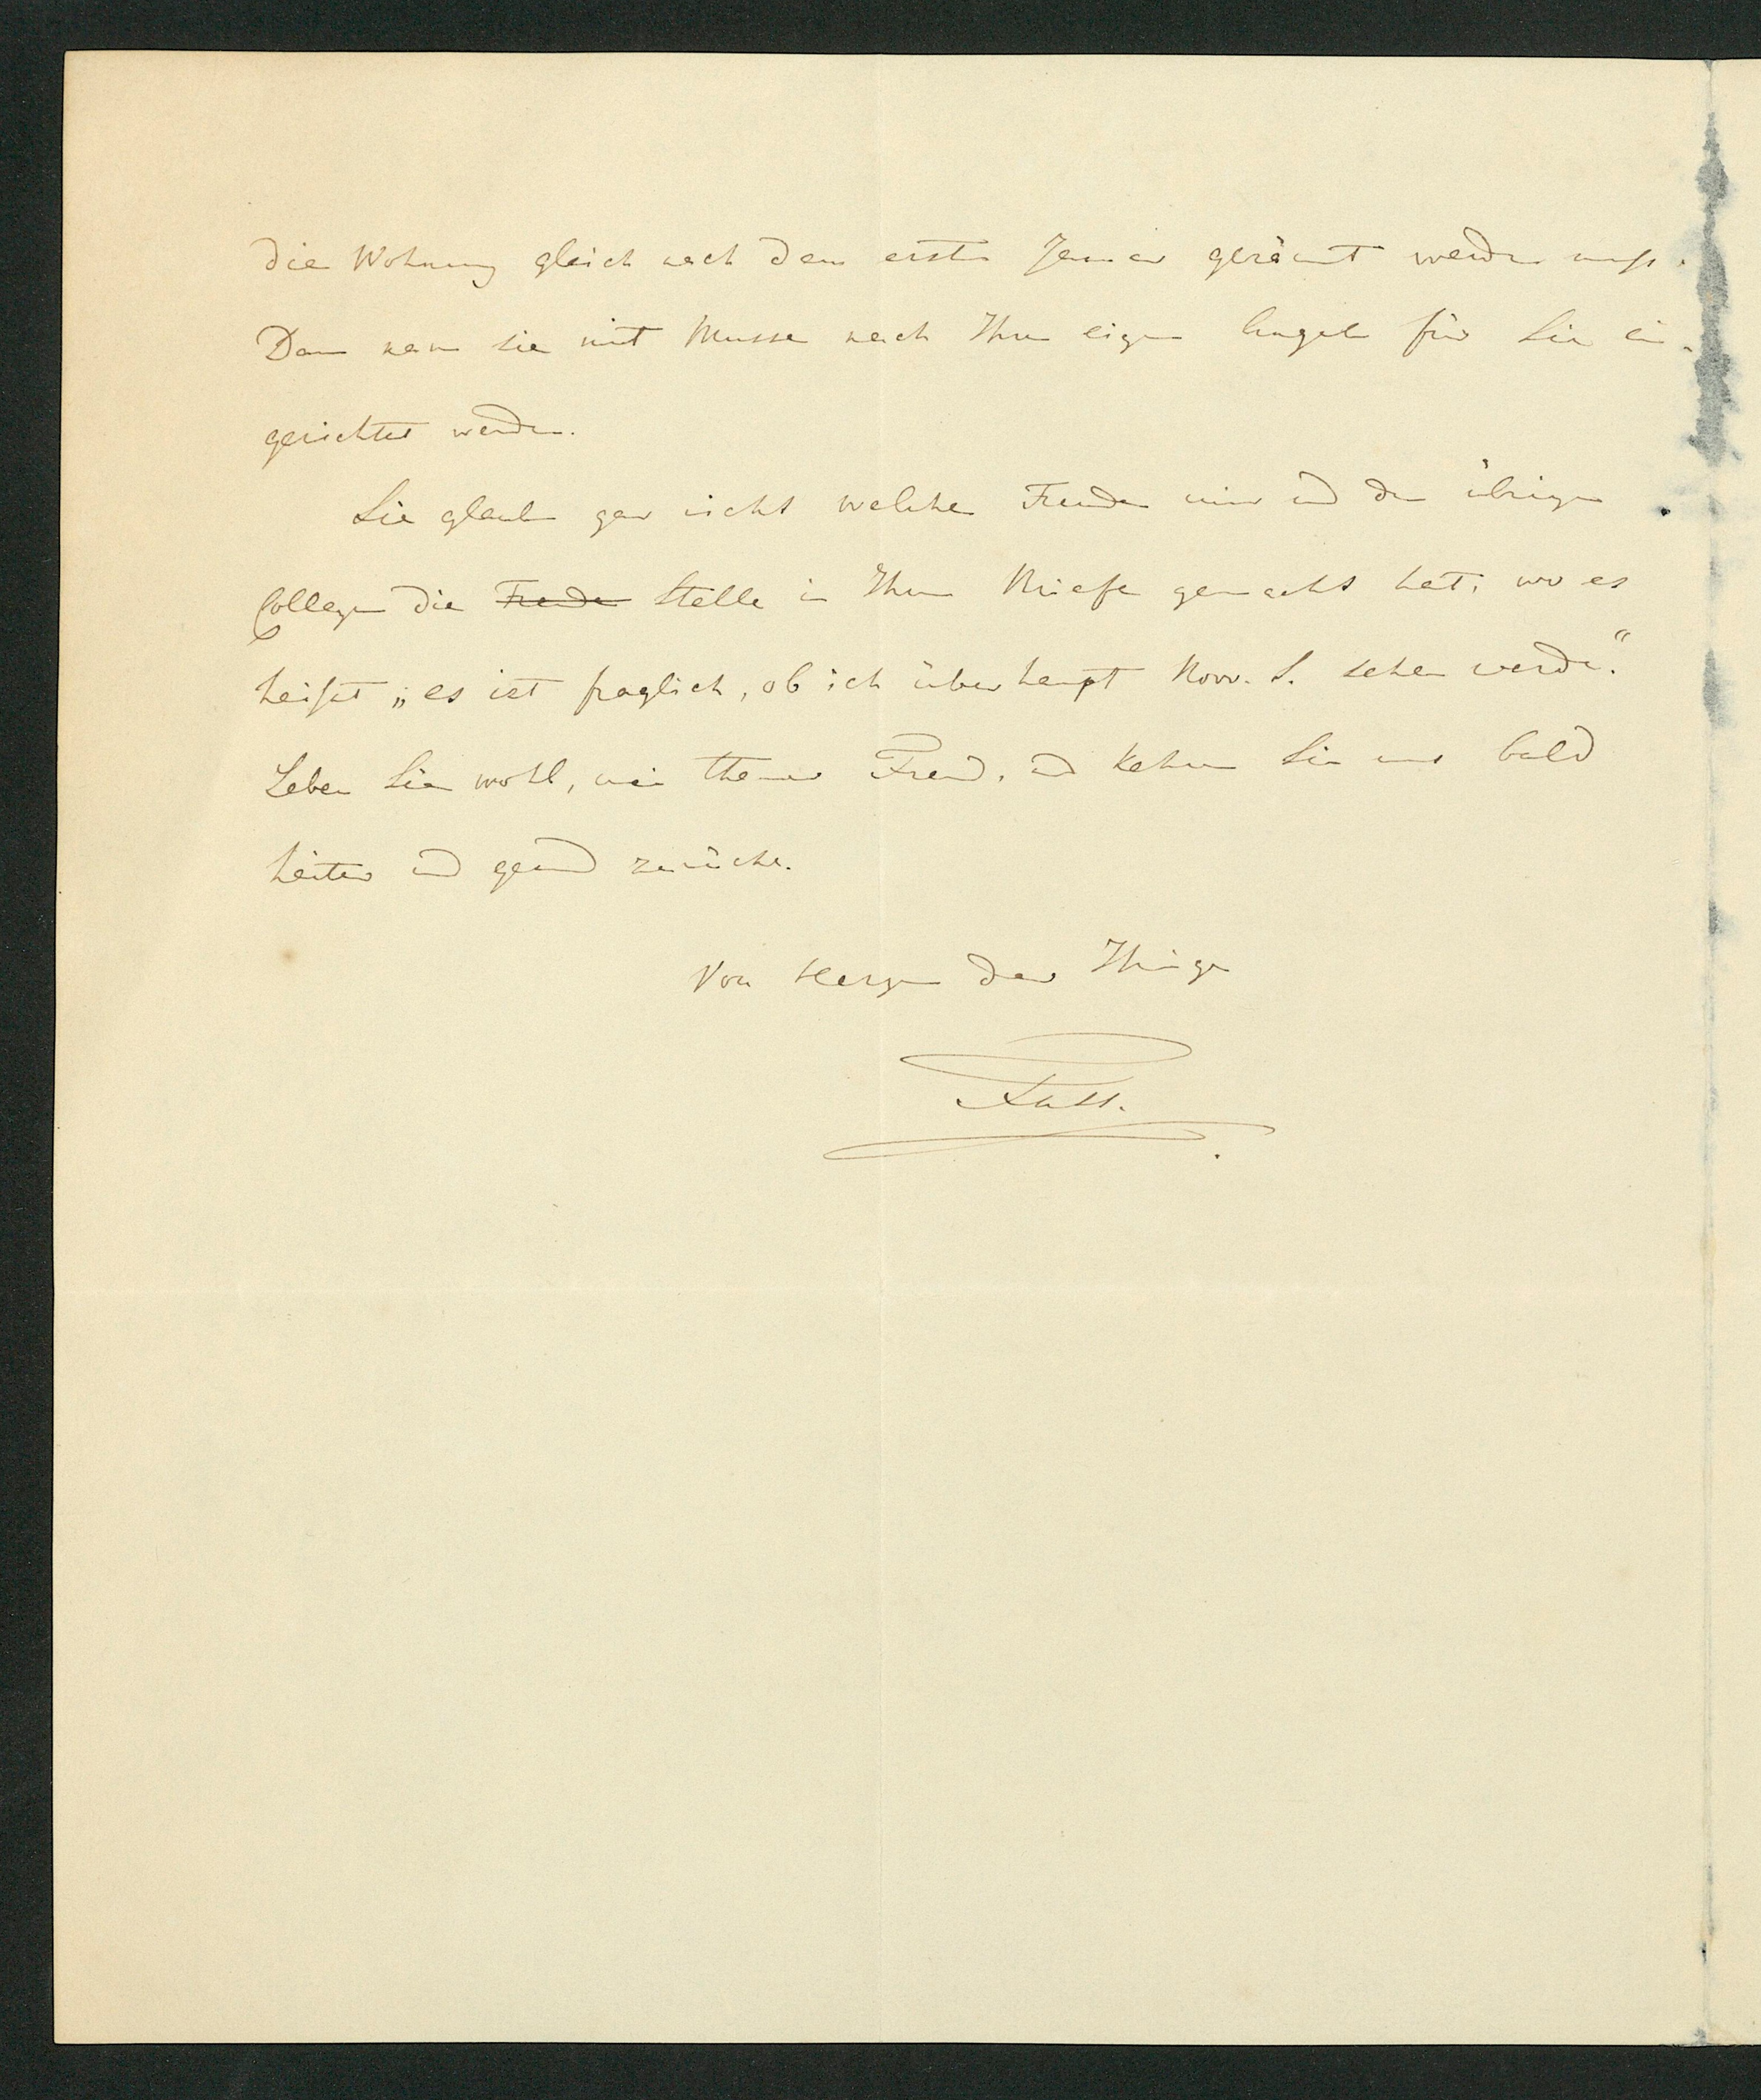 die Wohnung gleich nach dem ersten Januar geräumt werden muß.
Dann kann sie mit Musse nach Ihren eigenen Angaben für Sie ein-
gerichtet werden.
Sie glauben gar nicht welche Freude mir und den übrigen
Collegen die Freude Stelle in Ihrem Briefe gemacht hat, wo es
heißt „es ist fraglich, ob ich überhaupt Norv. S. sehen werde.“
Leben Sie wohl, mein theurer Freund, und kehren Sie uns bald
heiter und gesund zurücke.
Von Herzen der Ihrige